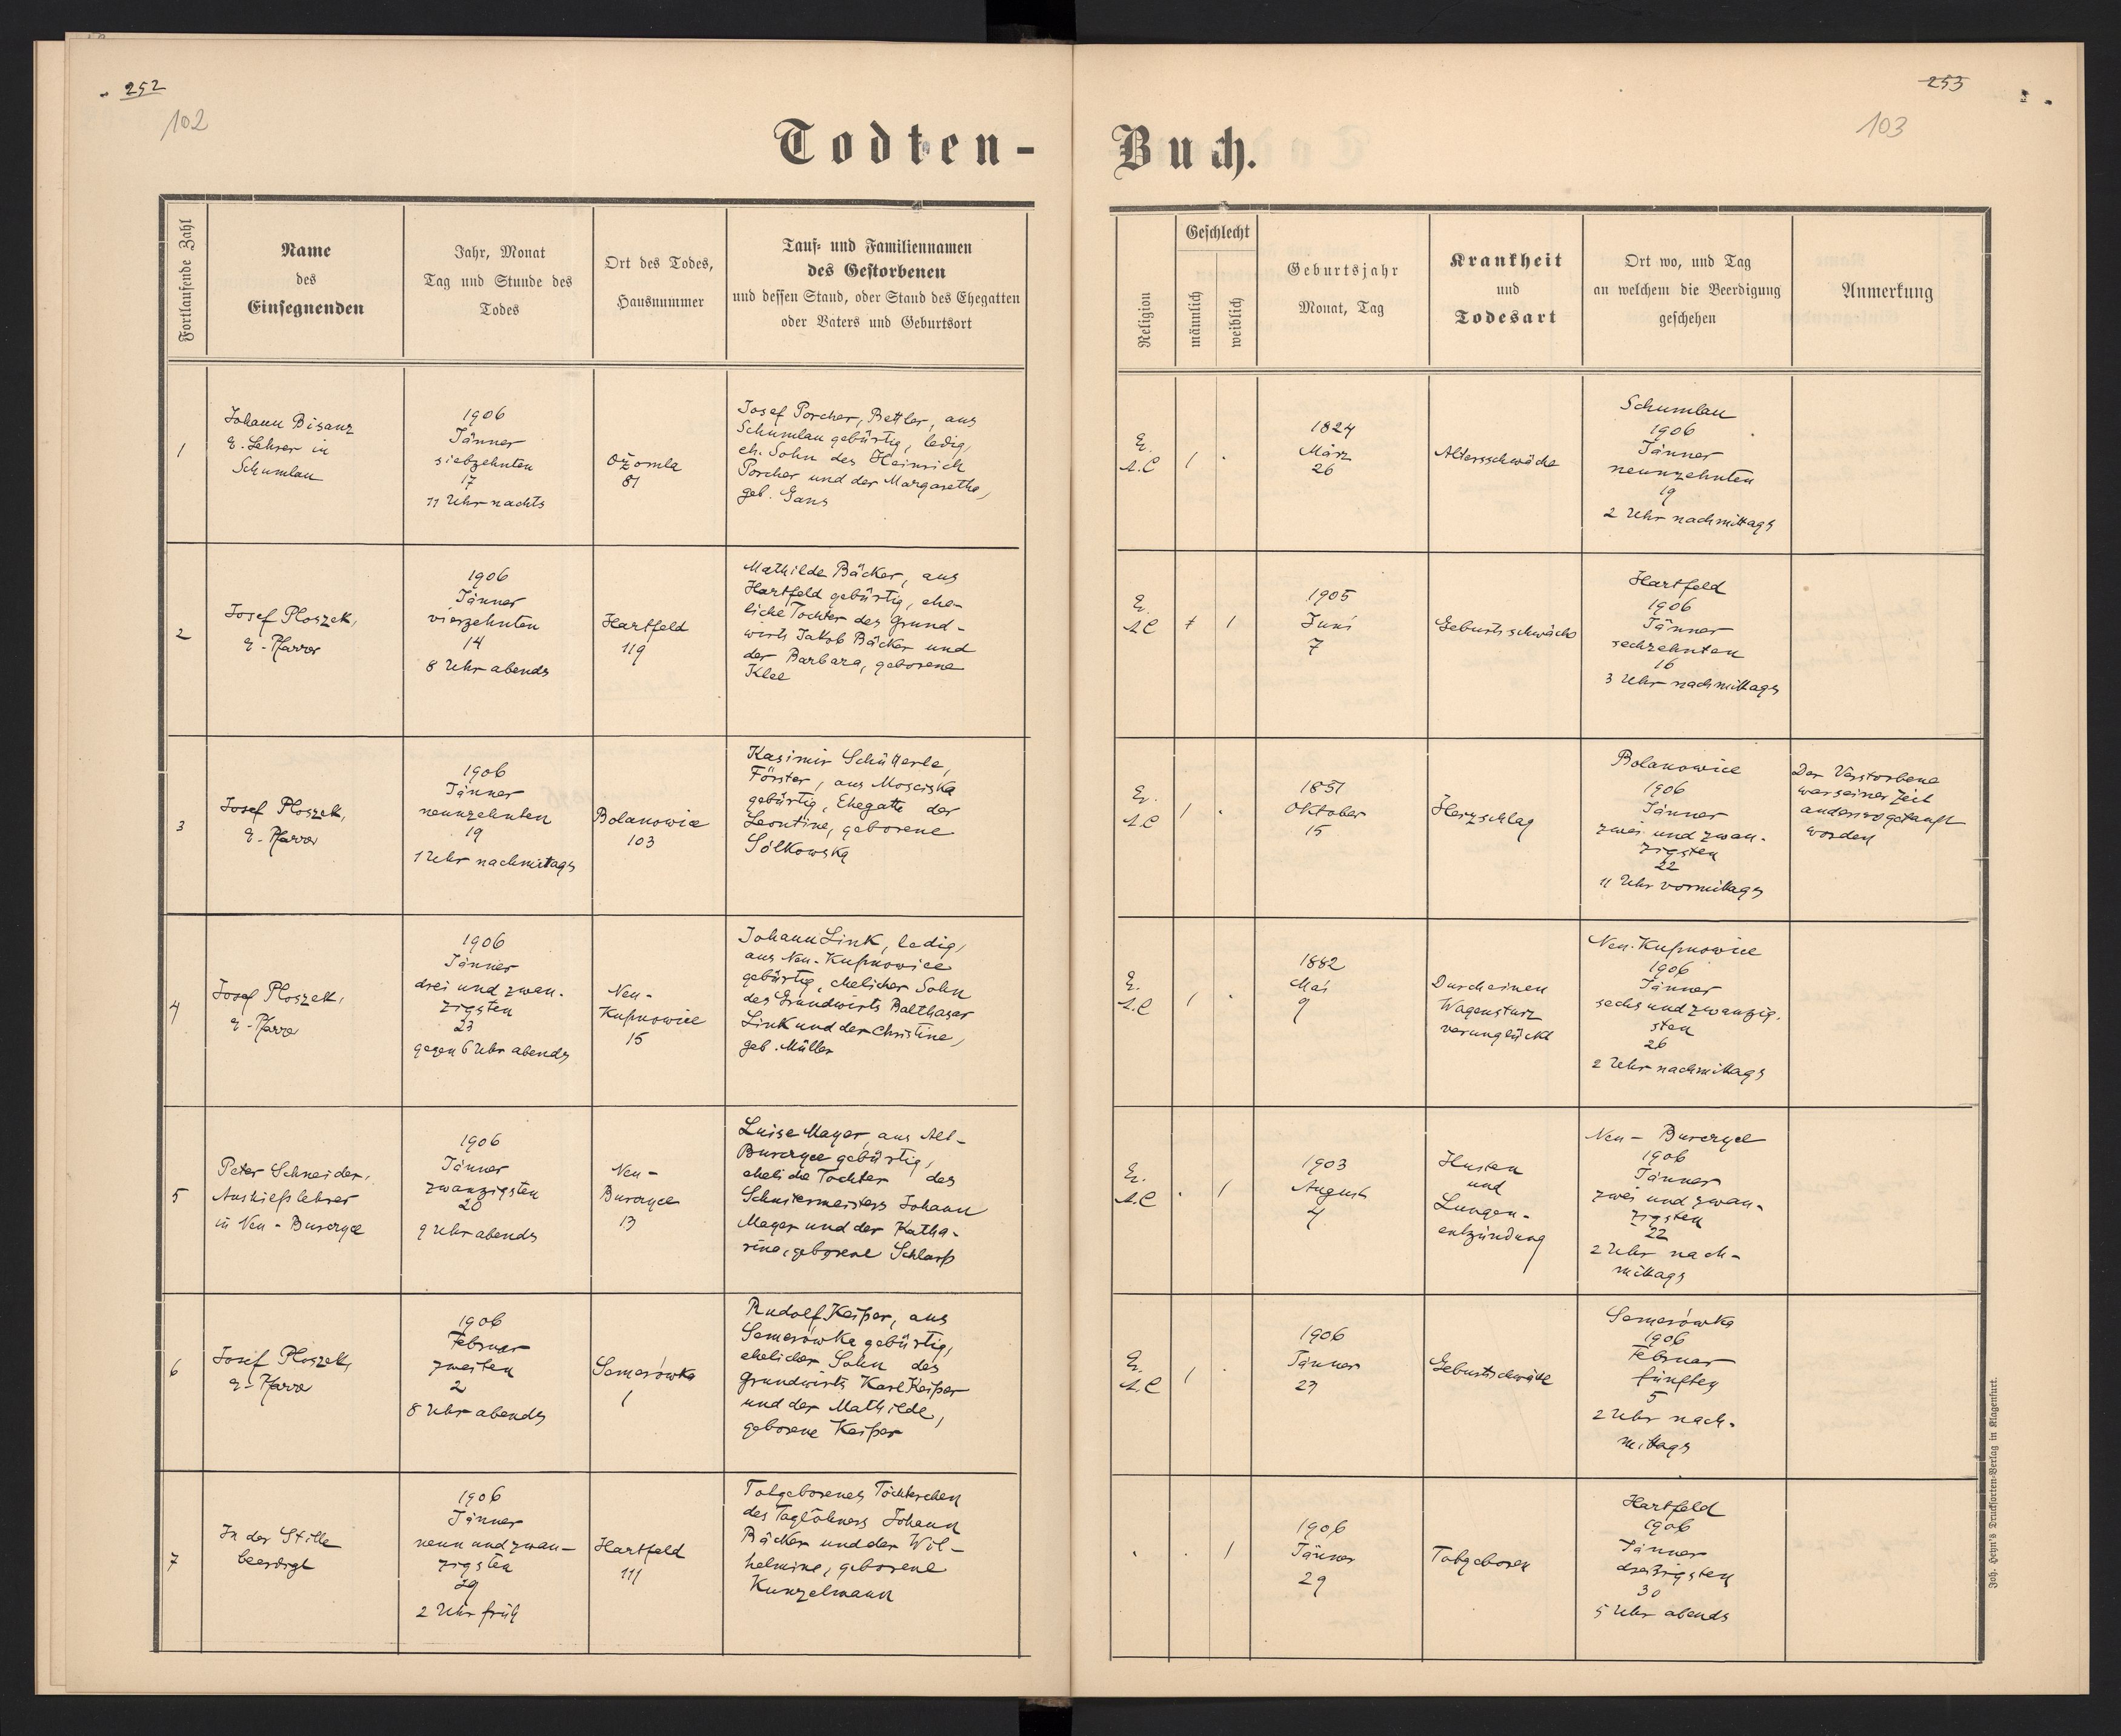 252
102
Todten-
Fortlaufende Zahl
Name
des
Einsegnenden
Jahr, Monat
Tag und Stunde des
Todes
Ort des Todes,
Hausnummer
Tauf- und Familiennamen
des Gestorbenen
und dessen Stand, oder Stand des Ehegatten
oder Vaters und Geburtsort
1
Johann Bisanz
E. Lehrer in
Schumlau
1906
Jänner
siebzehnten
17
11 Uhr nachts
Ożomla
81
Josef Porcher, Bettler, aus
Schumlau gebürtig, ledig,
eh. Sohn des Heinrich
Porcher und der Margarethe,
geb. Gans
2
Josef Ploszek,
E. Pfarrer
1906
Jänner
vierzehnten
14
8 Uhr abends
Hartfeld
119
Mathilde Bäcker, aus
Hartfeld gebürtig, ehe-
liche Tochter des Grund-
wirts Jakob Bäcker und
der Barbara, geborene
Klee
3
Josef Ploszek,
E. Pfarrer
1906
Jänner
neunzehnten
19
1 Uhr nachmittags
Bolanowice
103
Kasimir Schütterle,
Förster, aus Mosciska
gebürtig, Ehegatte der
Leontine, geborene
Sólkowska
4
Josef Ploszek,
E. Pfarrer
1906
Jänner
drei und zwan-
zigsten
23
gegen 6 Uhr abends
Neu-
Kupnowice
15
Johann Link, ledig,
aus Neu-Kupnowice
gebürtig, ehelicher Sohn
des Grundwirts Balthasar
Link und der Christine,
geb. Müller
5
Peter Schneider,
Aushilfslehrer
in Neu-Burczyce
1906
Jänner
zwanzigsten
20
9 Uhr abends
Neu-
Burczyce
13
Luise Mayer, aus Alt-
Burczyce gebürtig,
eheliche Tochter des
Schustermeisters Johann
Mayer und der Katha-
rine, geborene Schlarp
6
Josef Ploszek,
E. Pfarrer
1906
Februar
zweiten
2
8 Uhr abends
Semerówka
1
Rudolf Keiper, aus
Semerówka gebürtig,
ehelicher Sohn des
Grundwirts Karl Keiper
und der Mathilde,
geborene Keiper
7
In der Stille
beerdigt
1906
Jänner
neun und zwan-
zigsten
29
2 Uhr früh
Hartfeld
111
Totgeborenes Töchterchen
des Taglöhners Johann
Bäcker und der Wil-
helmine, geborene
Kunzelmann
253
103
Buch.
Religion
Geschlecht
männlich
weiblich
Geburtsjahr
Monat, Tag
Krankheit
und
Todesart
Ort wo, und Tag
an welchem die Beerdigung
geschehen
Anmerkung
E.
A.C
1
1824
März
26
Altersschwäche
Schumlau
1906
Jänner
neunzehnten
19
2 Uhr nachmittags
E.
A.C
1
1905
Juni
7
Geburtsschwäche
Hartfeld
1906
Jänner
sechzehnten
16
3 Uhr nachmittags
E.
A.C
1
Oktober
15
Herzschlag
Bolanowice
1906
Jänner
zwei und zwan-
zigsten
22
11 Uhr vormittags
Der Verstorbene
war seiner Zeit
anderswo getauft
worden
E.
A.C
1
1882
Mai
9
Durch einen
Wagensturz
verunglückt
Neu-Kupnowice
1906
Jänner
sechs und zwanzig-
sten
26
2 Uhr nachmittags
E.
A.C
1
1903
August
4
Husten
und
Lungen-
entzündung
Neu-Burczyce
1906
Jänner
zwei und zwan-
zigsten
22
2 Uhr nach-
mittags
E.
A.C
1
1906
Jänner
23
Geburtsschwäche
Semerówka
1906
Februar
fünften
5
2 Uhr nach-
mittags
1
1906
Jänner
29
Totgeboren
Hartfeld
1906
Jänner
dreißigsten
30
5 Uhr abends
Joh. Heyn's Drucksorten-Verlag in Klagenfurt.